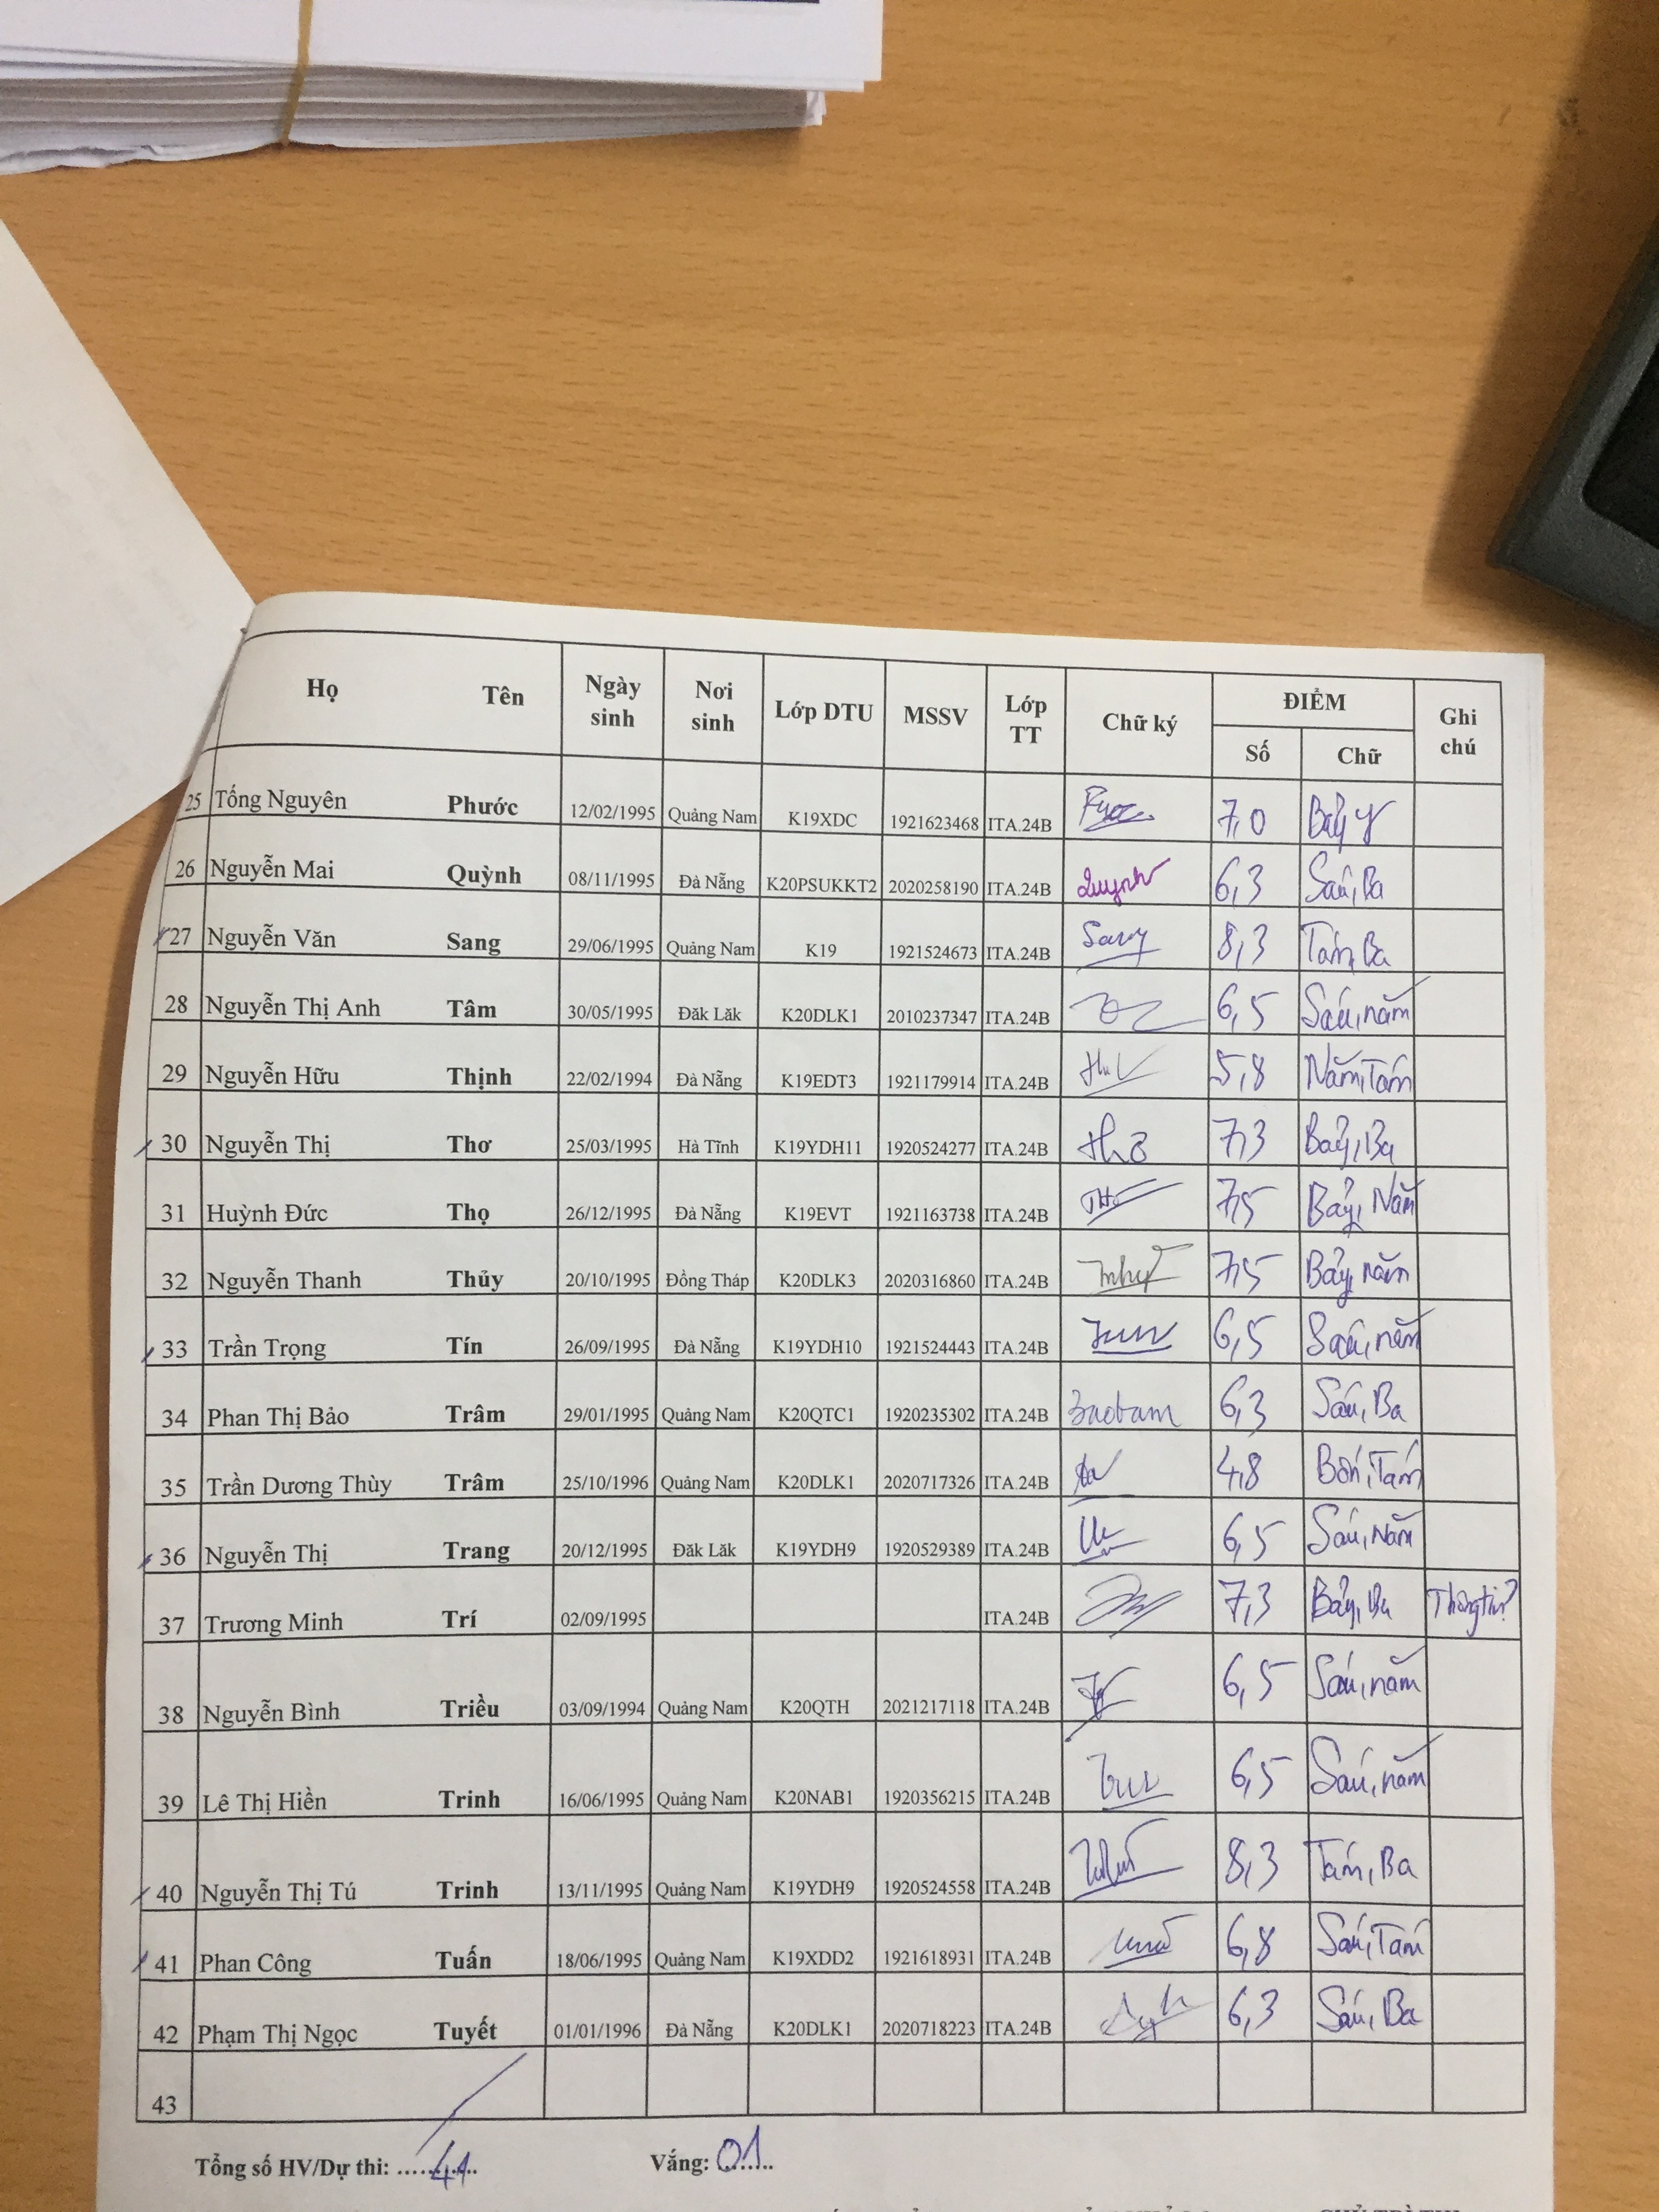 Họ Tên Ngày sinh Nơi sinh Lớp DTU MSSV Lớp TT Chữ ký ĐIỂM Ghi chú
Số Chữ
25 Tống Nguyên Phước 12/02/1995 Quảng Nam K19XDC 1921623468 ITA.24B 7,0 Bảy
26 Nguyễn Mai Quỳnh 08/11/1995 Đà Nẵng K20PSUKKT2 2020258190 ITA.24B Quynh 6,3 Sáu, Ba
27 Nguyễn Văn Sang 29/06/1995 Quảng Nam K19 1921524673 ITA.24B Sang 8,3 Tám, Ba
28 Nguyễn Thị Anh Tâm 30/05/1995 Đăk Lăk K20DLK1 2010237347 ITA.24B 6,5 Sáu, năm
29 Nguyễn Hữu Thịnh 22/02/1994 Đà Nẵng K19EDT3 1921179914 ITA.24B 5,8 Năm, Tám
30 Nguyễn Thị Thơ 25/03/1995 Hà Tĩnh K19YDH11 1920524277 ITA.24B Thơ 7,3 Bảy, Ba
31 Huỳnh Đức Thọ 26/12/1995 Đà Nẵng K19EVT 1921163738 ITA.24B 7,5 Bảy, Năm
32 Nguyễn Thanh Thủy 20/10/1995 Đồng Tháp K20DLK3 2020316860 ITA.24B 7,5 Bảy, năm
33 Trần Trọng Tín 26/09/1995 Đà Nẵng K19YDH10 1921524443 ITA.24B 6,5 Sáu, năm
34 Phan Thị Bảo Trâm 29/01/1995 Quảng Nam K20QTC1 1920235302 ITA.24B 6,3 Sáu, Ba
35 Trần Dương Thùy Trâm 25/10/1996 Quảng Nam K20DLK1 2020717326 ITA.24B 4,8 Bốn, Tám
36 Nguyễn Thị Trang 20/12/1995 Đăk Lăk K19YDH9 1920529389 ITA.24B 6,5 Sáu, Năm
37 Trương Minh Trí 02/09/1995 ITA.24B 7,3 Bảy, Ba Thông tin?
38 Nguyễn Bình Triều 03/09/1994 Quảng Nam K20QTH 2021217118 ITA.24B 6,5 Sáu, năm
39 Lê Thị Hiền Trinh 16/06/1995 Quảng Nam K20NAB1 1920356215 ITA.24B 6,5 Sáu, năm
40 Nguyễn Thị Tú Trinh 13/11/1995 Quảng Nam K19YDH9 1920524558 ITA.24B 8,3 Tám, Ba
41 Phan Công Tuấn 18/06/1995 Quảng Nam K19XDD2 1921618931 ITA.24B 6,8 Sáu, Tám
42 Phạm Thị Ngọc Tuyết 01/01/1996 Đà Nẵng K20DLK1 2020718223 ITA.24B 6,3 Sáu, Ba
43
Tổng số HV/Dự thi: 41 Vắng: 01